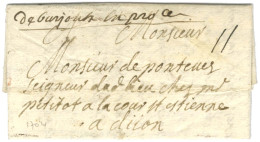 De barjoux en proce
Monsieur
11
Monsieur de ponteves
seigneur dud lieu chez mr
petitot a la cour st estienne
a dijon